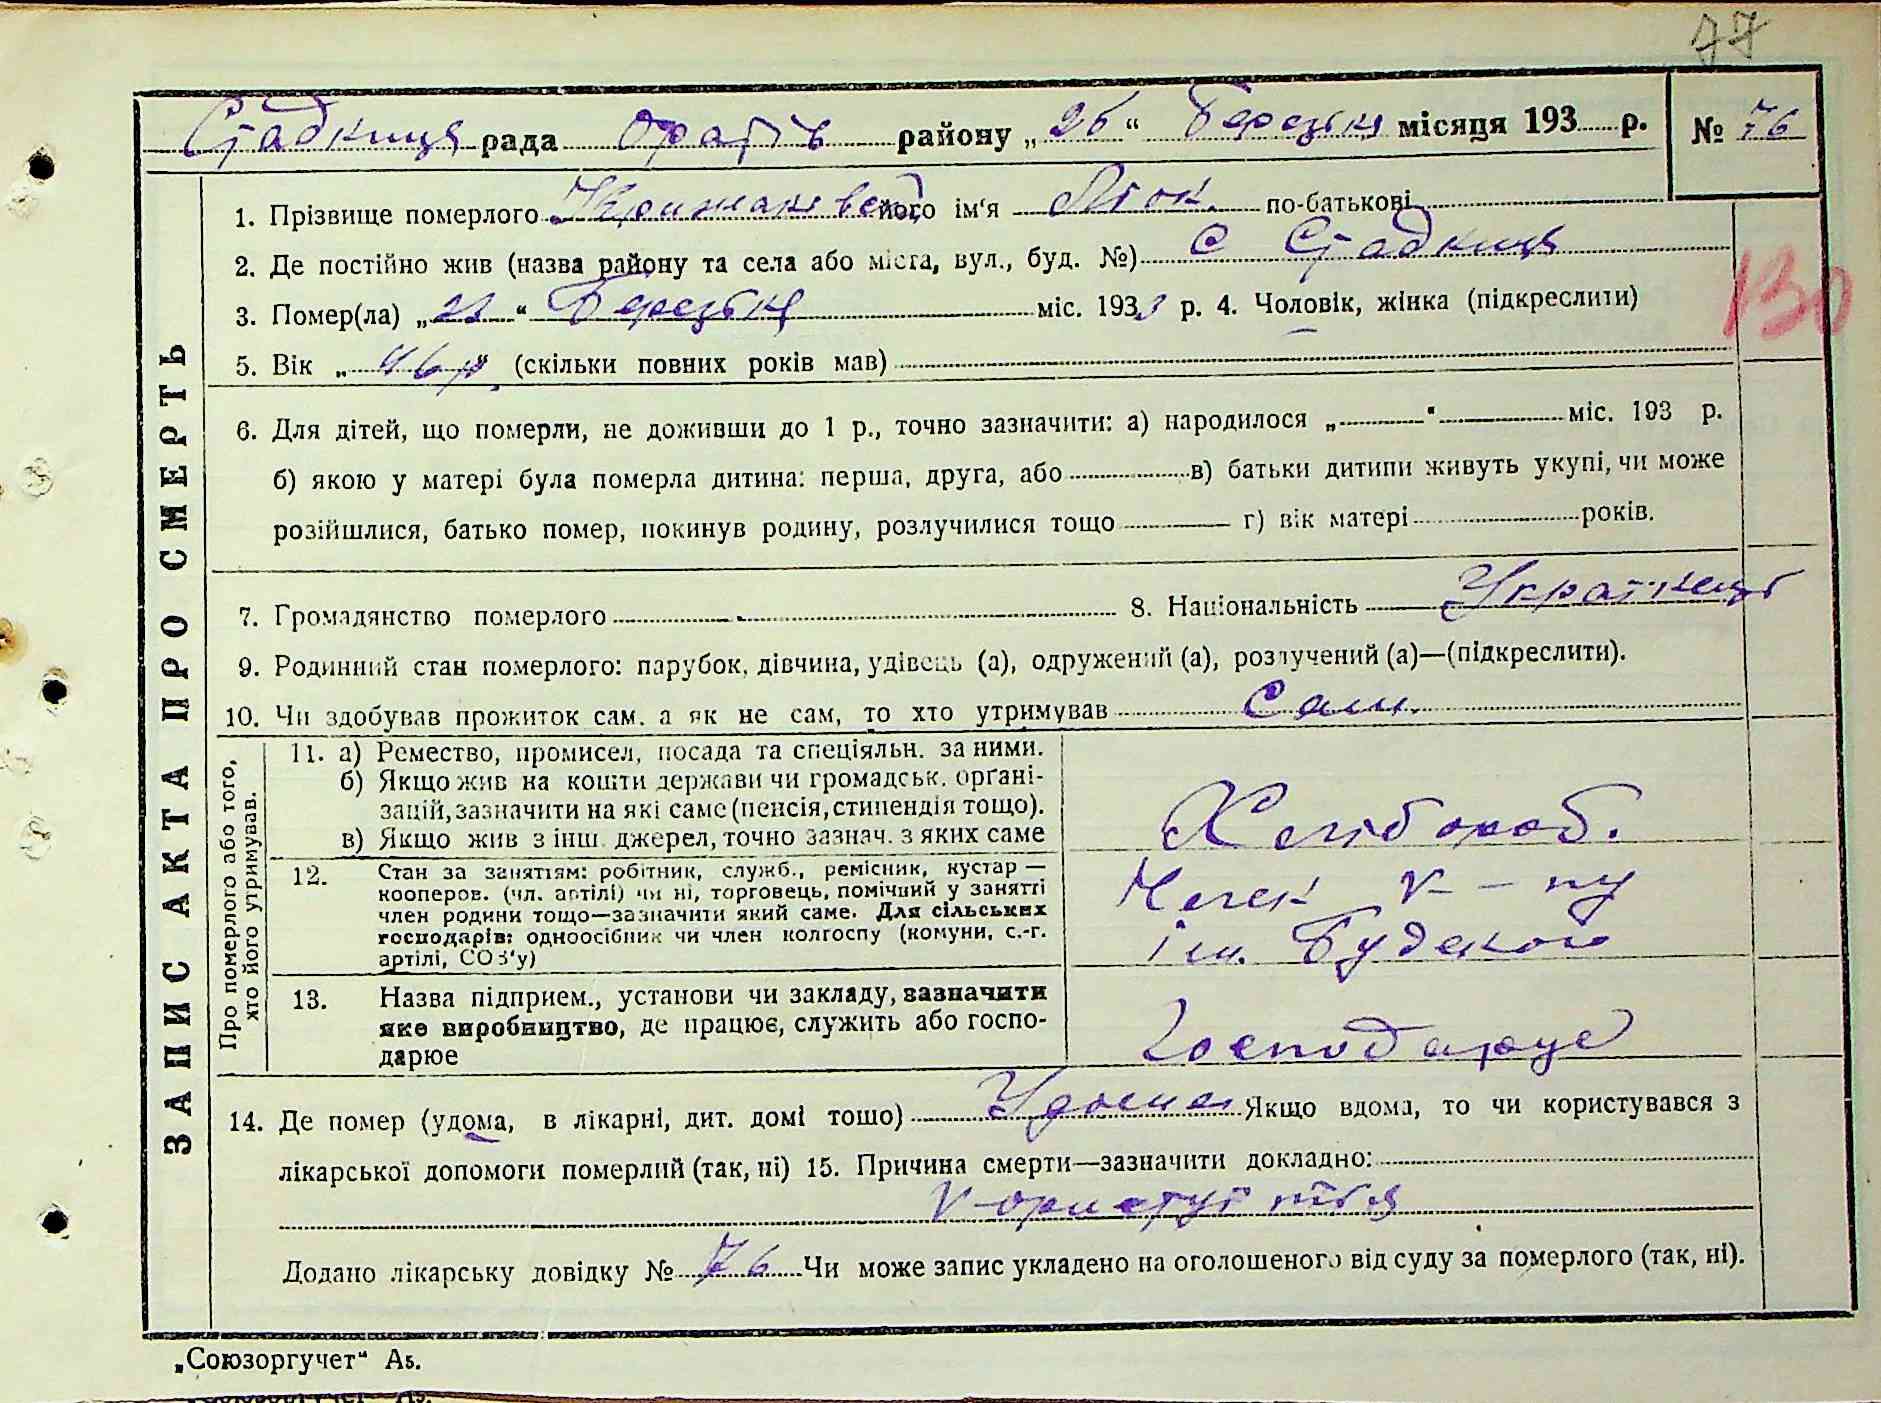 77
Стадниця рада Оратів району „26“ Березня місяця 193 р. № 76
1. Прізвище померлого його ім'я по-батькові
2. Де постійно жив (назва району та села або міста, вул., буд. №) С Стадниця
3. Помер(ла) „22“ Березня міс. 1933 р. 4. Чоловік, жінка (підкреслити)
130
5. Вік „46 р“ (скільки повних років мав)
6. Для дітей, що померли, не доживши до 1 р., точно зазначити: а) народилося „ “ міс. 193 р.
б) якою у матері була померла дитина: перша, друга, або в) батьки дитини живуть укупі, чи може
розійшлися, батько помер, покинув родину, розлучилися тощо г) вік матері років.
7. Громадянство померлого 8. Національність Українець
9. Родинний стан померлого: парубок, дівчина, удівець (а), одружений (а), розлучений (а)—(підкреслити).
10. Чи здобував прожиток сам. а як не сам, то хто утримував Сам.
ЗАПИС АКТА ПРО СМЕРТЬ
Про померлого або того,
хто його утримував.
11. а) Ремество, промисел, посада та спеціяльн. за ними.
б) Якщо жив на кошти держави чи громадськ. органі-
зацій, зазначити на які саме (пенсія, стипендія тощо).
в) Якщо жив з інш. джерел, точно зазнач. з яких саме
Хлібороб.
12. Стан за заняттям: робітник, служб., ремісник, кустар —
кооперов. (чл. артілі) чи ні, торговець, помічний у занятті
член родини тощо—зазначити який саме. Для сільських
господарів: одноосібник чи член колгоспу (комуни, с.-г.
артілі, СОЗ'у)
Член к-пу
ім.
13. Назва підприєм., установи чи закладу, зазначити
яке виробництво, де працює, служить або госпо-
дарює
Господарює
14. Де помер (удома, в лікарні, дит. домі тошо) Удома Якщо вдома, то чи користувався з
лікарської допомоги померлий (так, ні) 15. Причина смерти—зазначити докладно:
Додано лікарську довідку № 76 Чи може запис укладено на оголошеного від суду за померлого (так, ні).
„Союзоргучет“ А5.